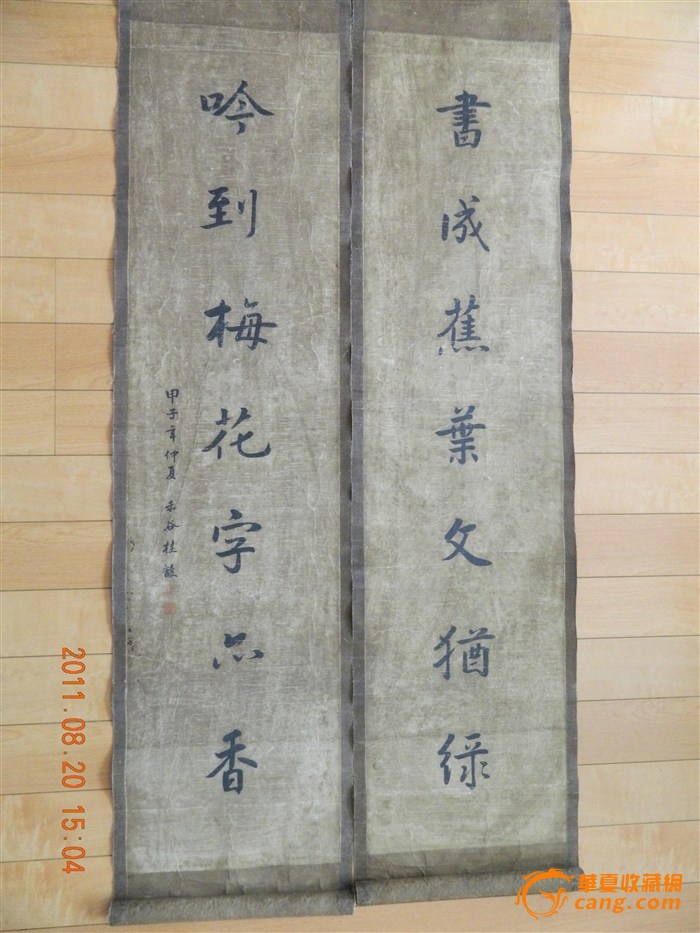 書成蕉葉文猶綠
吟到梅花字亦香
甲子年仲夏 未谷桂馥
2011.08.20 15:04
華夏收藏網
cang.com